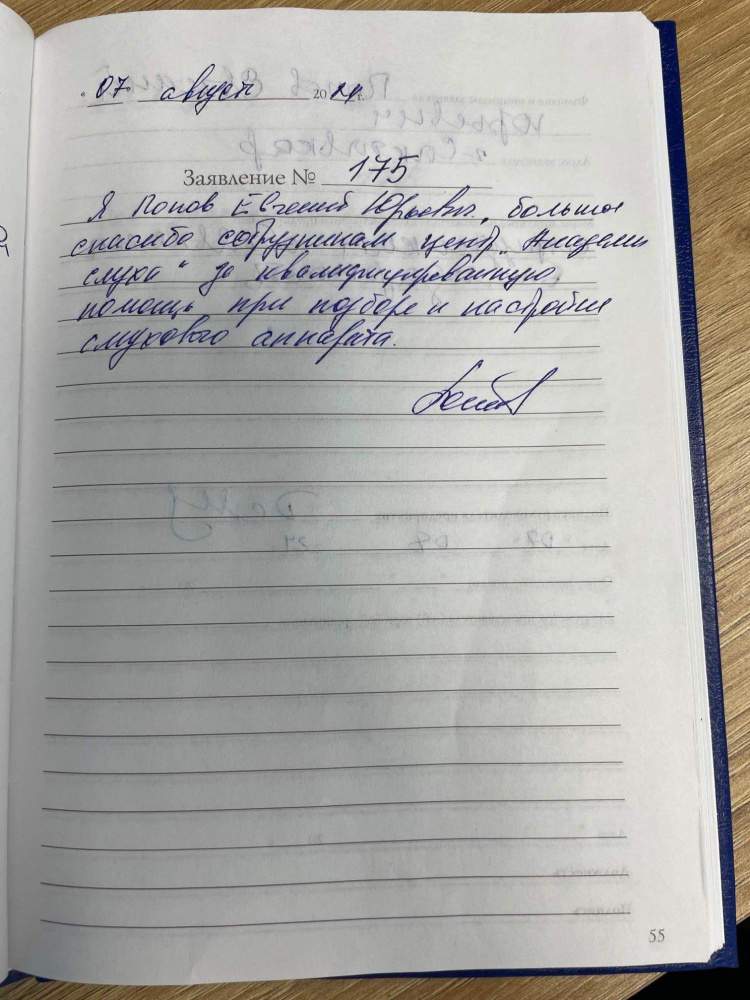 "07" август 2024 г.
Заявление № 175
Я Попов Евгений Юрьевич, большое
спасибо сотрудникам центр "Академии
слуха" за квалифицированную
помощь при подборе и настройке
слухового аппарата.
55